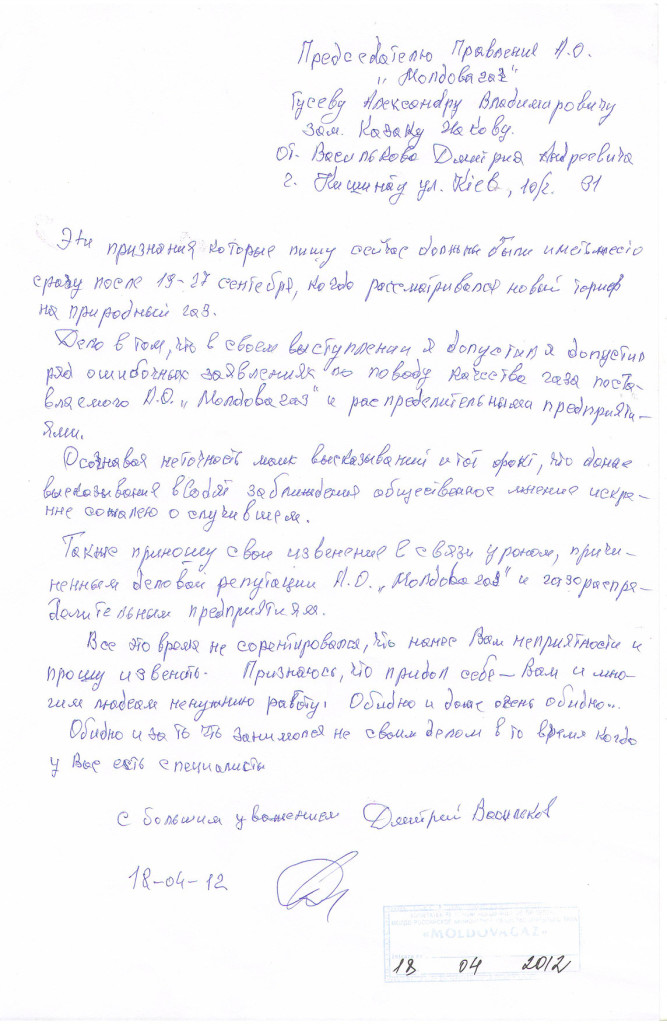 Председателю Правления А.О.
„Молдовагаз"
Гусеву Александру Владимировичу
Зам. Казаку Якову.
От. Василькова Дмитрия Андреевича
г. Кишинэу ул. Кіев, 10/2. 91
Эти признания которые пишу сейчас должны были иметь место
сразу после 19-27 сентября, когда рассматривался новый тариф
на природный газ.
Дело в том, что в своем выступлении я допустил я допустил
ряд ошибочных заявлениях по поводу качества газа поста-
вляемого А.О. „Молдовагаз" и распределительными предприяти-
ями.
Осознавая неточность моих высказываний и тот факт, что данные
высказывания вводят заблуждения общественное мнение искре-
нне сожалею о случившем.
Также приношу свои извенение в связи уроном, причи-
ненным деловой репутации А.О. „Молдовагаз" и газораспре-
делительным предприятиям.
Все это время не сорентировался, что нанес Вам неприятности и
прошу извенить. Признаюсь, что придал себе – Вам и мно-
гим людям ненужнию работу. Обидно и даже очень обидно...
Обидно и за то что занимался не своим делом в то время когда
у Вас есть специалисты
С большим уважением Дмитрий Васильков
18-04-12
«MOLDOVAGAZ»
18 04 2012